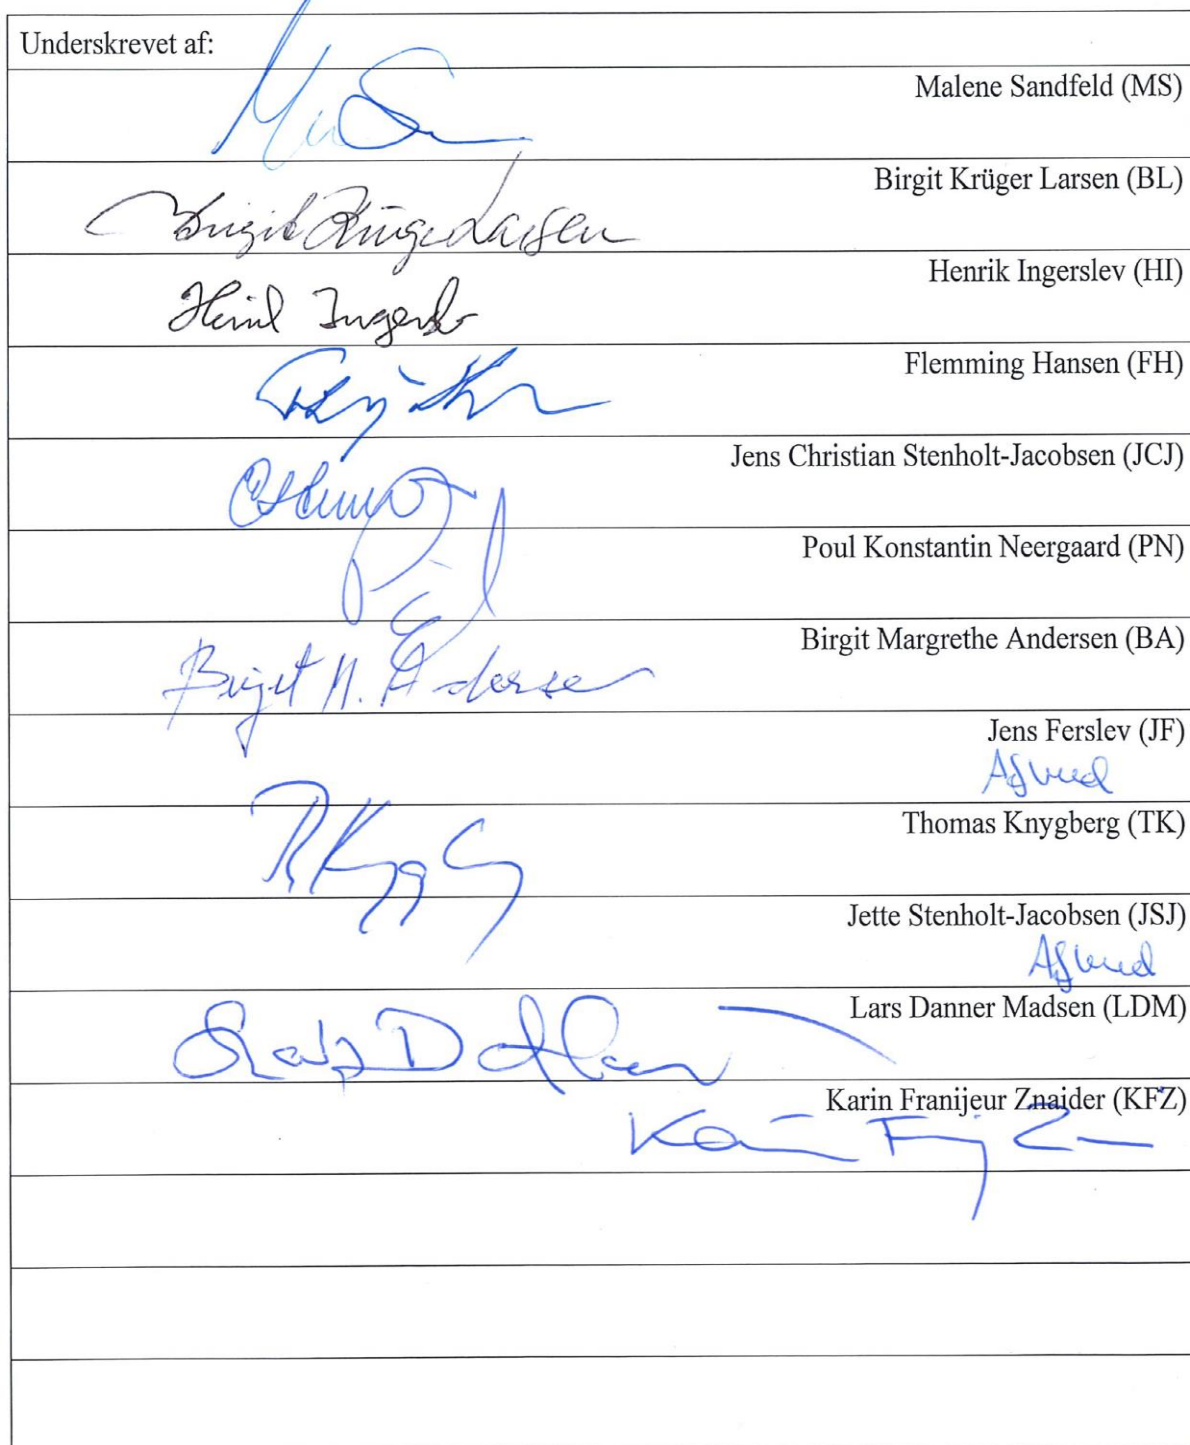 Underskrevet af:
Malene Sandfeld (MS)
Birgit Krüger Larsen (BL)
Birgit Krüger Larsen
Henrik Ingerslev (HI)
Henrik Ingerslev
Flemming Hansen (FH)
Jens Christian Stenholt-Jacobsen (JCJ)
Poul Konstantin Neergaard (PN)
Birgit Margrethe Andersen (BA)
Birgit M. Andersen
Jens Ferslev (JF)
Afbud
Thomas Knygberg (TK)
Jette Stenholt-Jacobsen (JSJ)
Afbud
Lars Danner Madsen (LDM)
Lars D
Karin Franijeur Znaider (KFZ)